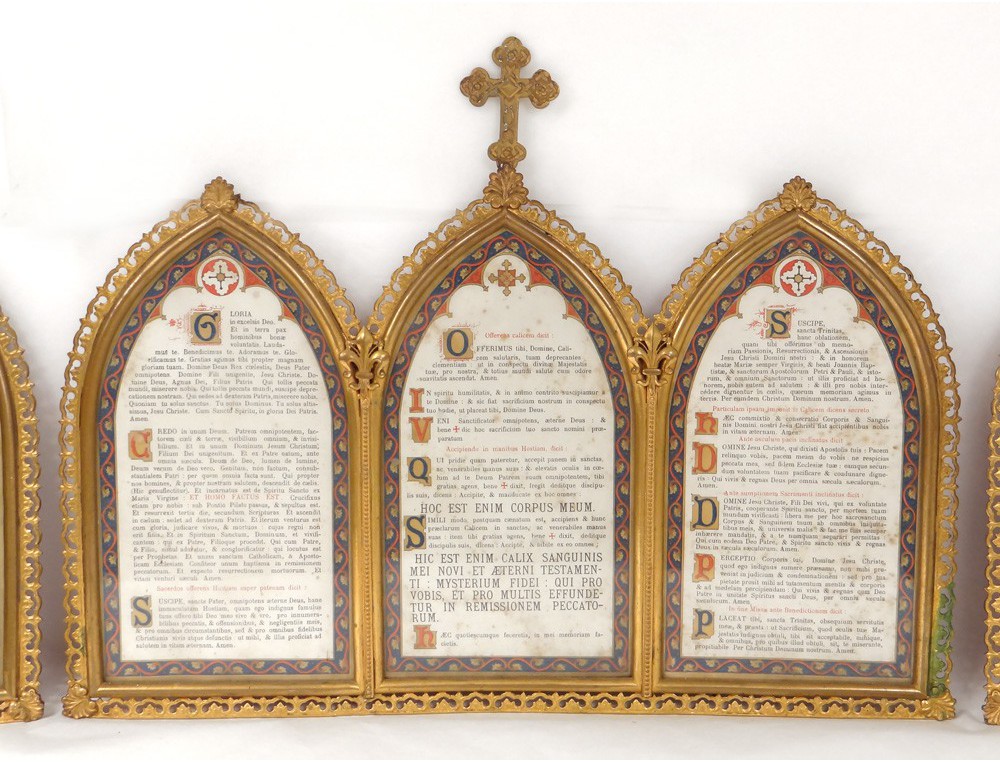 GLORIA
in excelsis Deo.
Et in terra pax
hominibus bonæ
voluntatis. Lauda-
mus te. Benedicimus te. Adoramus te. Glo-
rificamus te. Gratias agimus tibi propter magnam
gloriam tuam. Domine Deus Rex cœlestis, Deus Pater
omnipotens. Domine Fili unigenite, Jesu Christe. Do-
mine Deus, Agnus Dei, Filius Patris. Qui tollis peccata
mundi, miserere nobis. Qui tollis peccata mundi, suscipe depre-
cationem nostram. Qui sedes ad dexteram Patris, miserere nobis.
Quoniam tu solus sanctus. Tu solus Dominus. Tu solus altis-
simus, Jesu Christe. Cum Sancto Spiritu, in gloria Dei Patris.
Amen.
CREDO in unum Deum. Patrem omnipotentem, fac-
torem cœli & terræ, visibilium omnium, & invisi-
bilium. Et in unum Dominum Jesum Christum,
Filium Dei unigenitum. Et ex Patre natum, ante
omnia sæcula. Deum de Deo, lumen de lumine,
Deum verum de Deo vero. Genitum, non factum, consub-
stantialem Patri : per quem omnia facta sunt. Qui propter
nos homines, & propter nostram salutem, descendit de cœlis.
(Hic genuflectitur). Et incarnatus est de Spiritu Sancto ex
Maria Virgine : ET HOMO FACTUS EST. Crucifixus
etiam pro nobis : sub Pontio Pilato passus, & sepultus est.
Et resurrexit tertia die, secundum Scripturas. Et ascendit
in cœlum : sedet ad dexteram Patris. Et iterum venturus est
cum gloria, judicare vivos, & mortuos : cujus regni non
erit finis. Et in Spiritum Sanctum, Dominum, et vivifi-
cantem : qui ex Patre, Filioque procedit. Qui cum Patre,
& Filio, simul adoratur, & conglorificatur : qui locutus est
per Prophetas. Et unam sanctam Catholicam, & Aposto-
licam Ecclesiam. Confiteor unum baptisma in remissionem
peccatorum. Et expecto resurrectionem mortuorum. Et
vitam venturi sæculi. Amen.
Sacerdos offerens Hostiam super patenam dicit :
SUSCIPE, sancte Pater, omnipotens æterne Deus, hanc
immaculatam Hostiam, quam ego indignus famulus
tuus offero tibi Deo meo vivo & vero, pro innumera-
bilibus peccatis, & offensionibus, & negligentiis meis,
& pro omnibus circumstantibus, sed & pro omnibus fidelibus
christianis vivis atque defunctis : ut mihi, & illis proficiat ad
salutem in vitam æternam. Amen.
Offerens calicem dicit :
OFFERIMUS tibi, Domine, Cali-
cem salutaris, tuam deprecantes
clementiam : ut in conspectu divinæ Majestatis
tuæ, pro nostra, & totius mundi salute cum odore
suavitatis ascendat. Amen.
IN spiritu humilitatis, & in animo contrito suscipiamur a
te Domine : & sic fiat sacrificium nostrum in conspectu
tuo hodie, ut placeat tibi, Domine Deus.
VENI Sanctificator omnipotens, æterne Deus : &
bene ✠ dic hoc sacrificium tuo sancto nomini præ-
paratum
Accipiendo in manibus Hostiam, dicit :
QUI pridie quam pateretur, accepit panem in sanctas,
ac venerabiles manus suas : & elevatis oculis in cœ-
lum ad te Deum Patrem suum omnipotentem, tibi
gratias agens, bene ✠ dixit, fregit deditque discipu-
lis suis, dicens : Accipite, & manducate ex hoc omnes :
HOC EST ENIM CORPUS MEUM.
SIMILI modo, postquam cœnatum est, accipiens & hunc
præclarum Calicem in sanctas, ac venerabiles manus
suas : item tibi gratias agens, bene ✠ dixit, deditque
discipulis suis, dicens : Accipite, & bibite ex eo omnes :
HIC EST ENIM CALIX SANGUINIS
MEI NOVI ET ÆTERNI TESTAMEN-
TI : MYSTERIUM FIDEI : QUI PRO
VOBIS, ET PRO MULTIS EFFUNDE-
TUR IN REMISSIONEM PECCATO-
RUM.
HÆC quotiescumque feceritis, in mei memoriam fa-
cietis.
SUSCIPE,
sancta Trinitas,
hanc oblationem,
quam tibi offerimus ob memo-
riam Passionis, Resurrectionis, & Ascensionis
Jesu Christi Domini nostri : & in honorem
beatæ Mariæ semper Virginis, & beati Joannis Bap-
tistæ, & sanctorum Apostolorum Petri & Pauli, & isto-
rum, & omnium Sanctorum : ut illis proficiat ad ho-
norem, nobis autem ad salutem : & illi pro nobis inter-
cedere dignentur in cœlis, quorum memoriam agimus in
terris. Per eumdem Christum Dominum nostrum. Amen.
Particulam ipsam immisit in Calicem dicens secreto
HÆC commixtio & consecratio Corporis & Sangui-
nis Domini nostri Jesu Christi fiat accipientibus nobis
in vitam æternam. Amen.
Ante osculum pacis inclinatus dicit :
DOMINE Jesu Christe, qui dixisti Apostolis tuis : Pacem
relinquo vobis, pacem meam do vobis : ne respicias
peccata mea, sed fidem Ecclesiæ tuæ : eamque secun-
dum voluntatem tuam pacificare & coadunare digne-
ris : Qui vivis & regnas Deus per omnia sæcula sæculorum.
Amen.
Ante sumptionem Sacramenti inclinatus dicit :
DOMINE Jesu Christe, Fili Dei vivi, qui ex voluntate
Patris, cooperante Spiritu sancto, per mortem tuam
mundum vivificasti : libera me per hoc sacrosanctum
Corpus & Sanguinem tuum ab omnibus iniquita-
tibus meis, & universis malis : & fac me tuis semper
inhærere mandatis, & a te numquam separari permittas :
Qui cum eodem Deo Patre, & Spiritu sancto vivis & regnas
Deus in sæcula sæculorum. Amen.
PERCEPTIO Corporis tui, Domine Jesu Christe,
quod ego indignus sumere præsumo, non mihi pro-
veniat in judicium & condemnationem : sed pro tua
pietate prosit mihi ad tutamentum mentis & corporis
& ad medelam percipiendam : Qui vivis & regnas cum Deo
Patre in unitate Spiritus sancti Deus, per omnia sæcula
sæculorum. Amen.
In fine Missæ ante Benedictionem dicit :
PLACEAT tibi, sancta Trinitas, obsequium servitutis
meæ, & præsta : ut Sacrificium, quod oculis tuæ Ma-
jestatis indignus obtuli, tibi sit acceptabile, mihique,
& omnibus, pro quibus illud obtuli, sit, te miserante,
propitiabile. Per Christum Dominum nostrum. Amen.